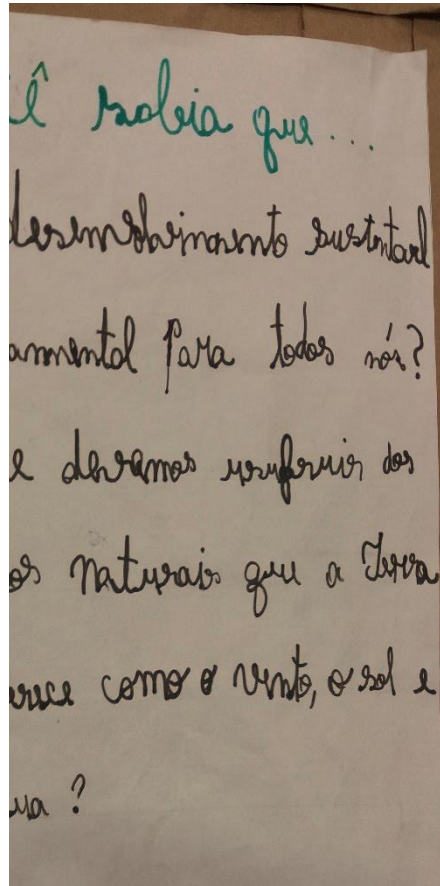 ê sabia que...
desenvolvimento sustentavel
amental para todos nós?
e devamos usufruir dos
os naturais que a Terra
erece como o vento, o sol e
ua ?